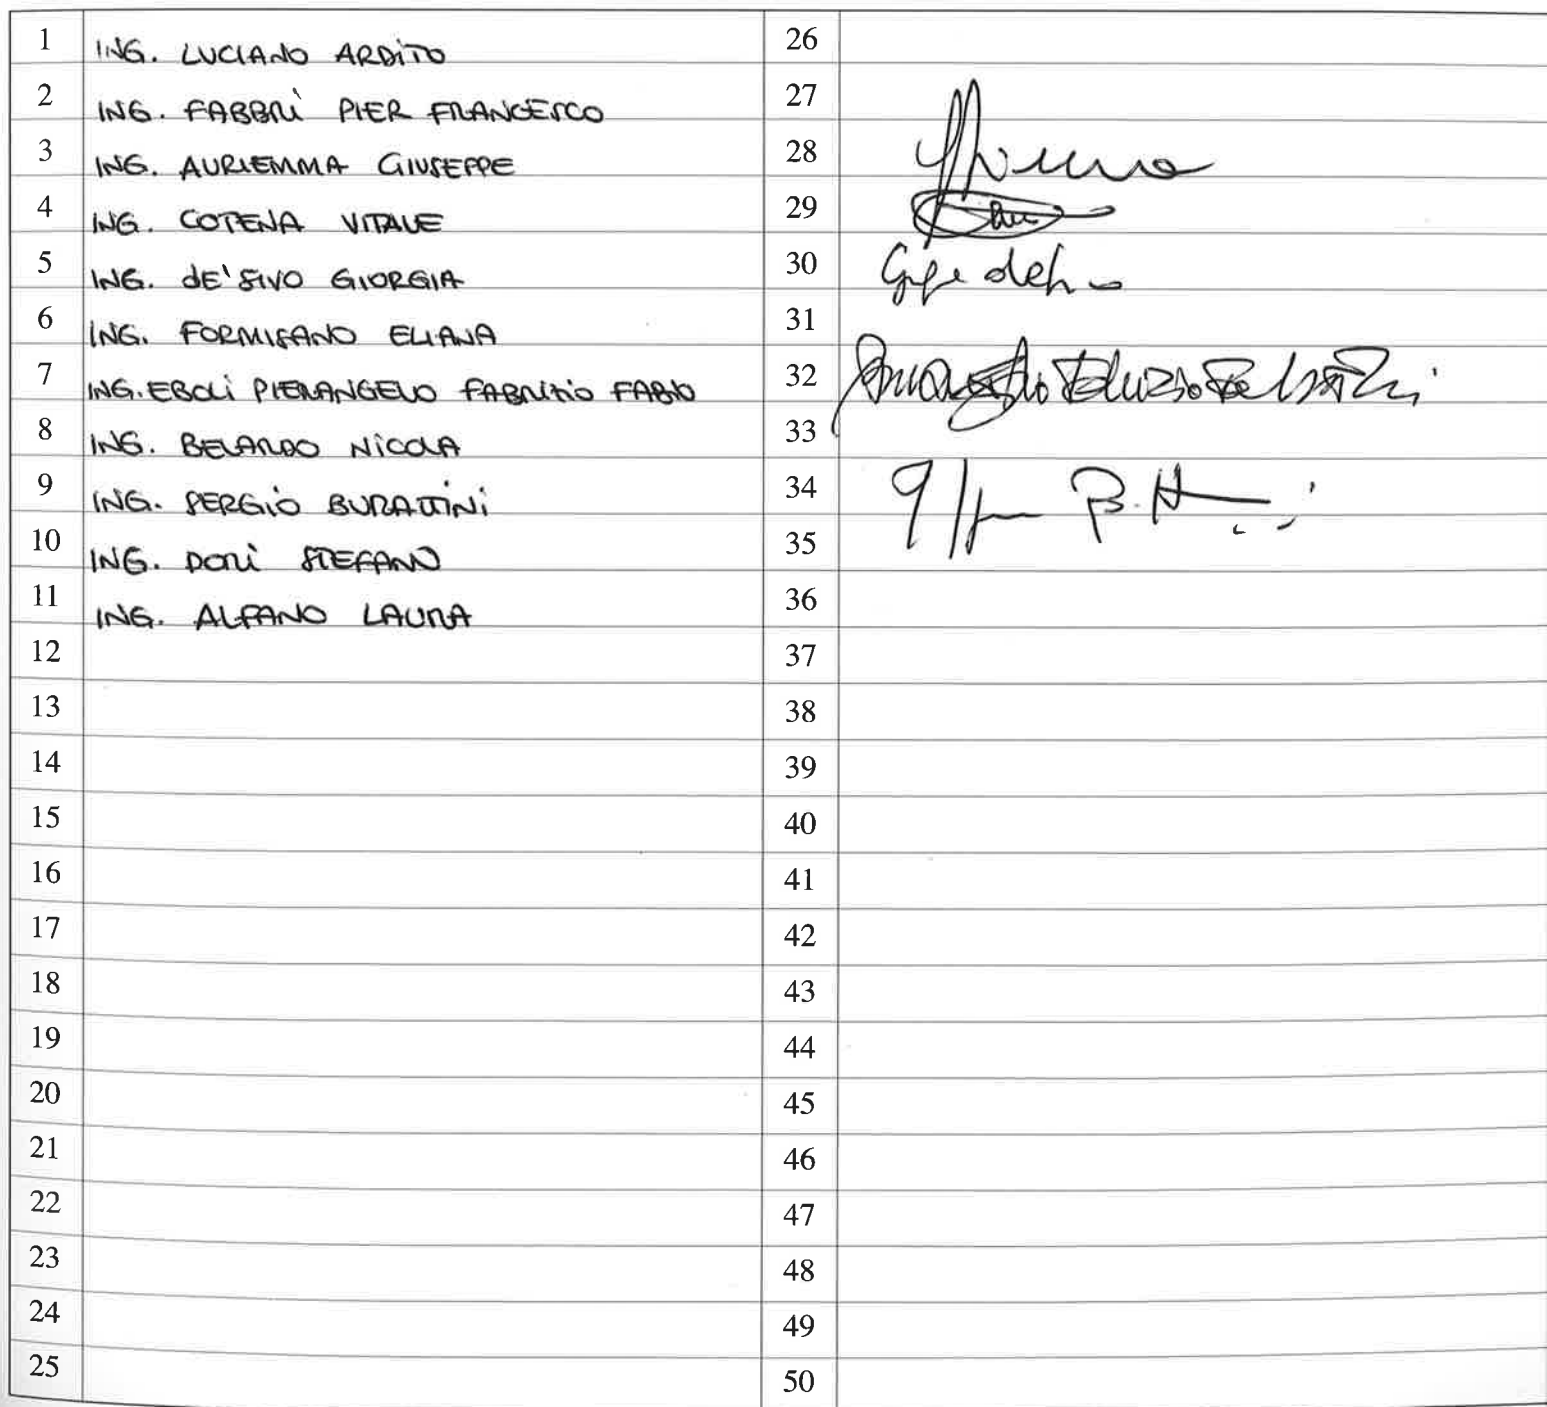 1 ING. LUCIANO ARDITO 26
2 ING. FABBRI PIER FRANCESCO 27
3 ING. AURIEMMA GIUSEPPE 28
4 ING. COTENA VITALE 29
5 ING. dE' SIVO GIORGIA 30
6 ING. FORMISANO ELIANA 31
7 ING. EBOLI PIERANGELO FABRIZIO FABIO 32
8 ING. BELARDO NICOLA 33
9 ING. SERGIO BURATTINI 34
10 ING. DORI STEFANO 35
11 ING. ALFANO LAURA 36
12 37
13 38
14 39
15 40
16 41
17 42
18 43
19 44
20 45
21 46
22 47
23 48
24 49
25 50